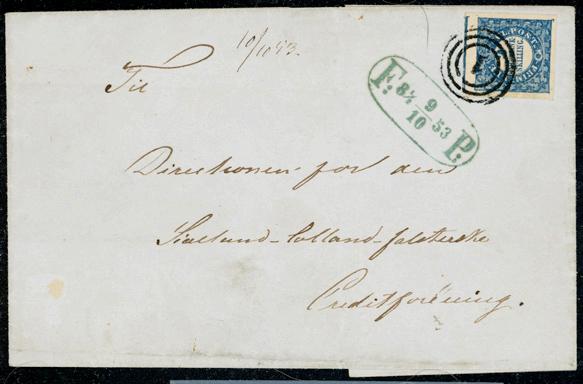 10/10 53.
Til
F: 8¼ 9/10 53 P:
1
Directionen for den
Siælland-Lolland-falsterske
Creditforening.